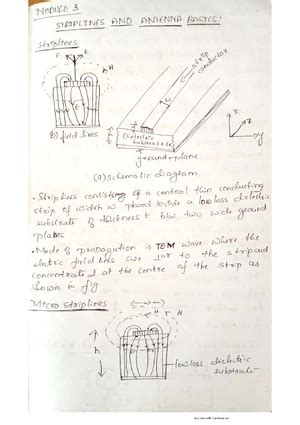 MODULE 3
STRIPLINES AND ANTENNA BASICS:
Striplines
E
H
E
strip
conductor
w
t
Dielectric
Substrate
ground-plane
x
z
y
(b) field lines
(a) schematic diagram.
• Striplines consisting of a central thin conducting
strip of width w placed inside a low loss dielectric
substrate of thickness t b/w two wide ground
plates
• Mode of propagation is TEM wave where the
electric field lines are lar to the strip and
concentrated at the centre of the strip as
shown in fig
Micro striplines
w
H
h
low loss dielectric
substrate